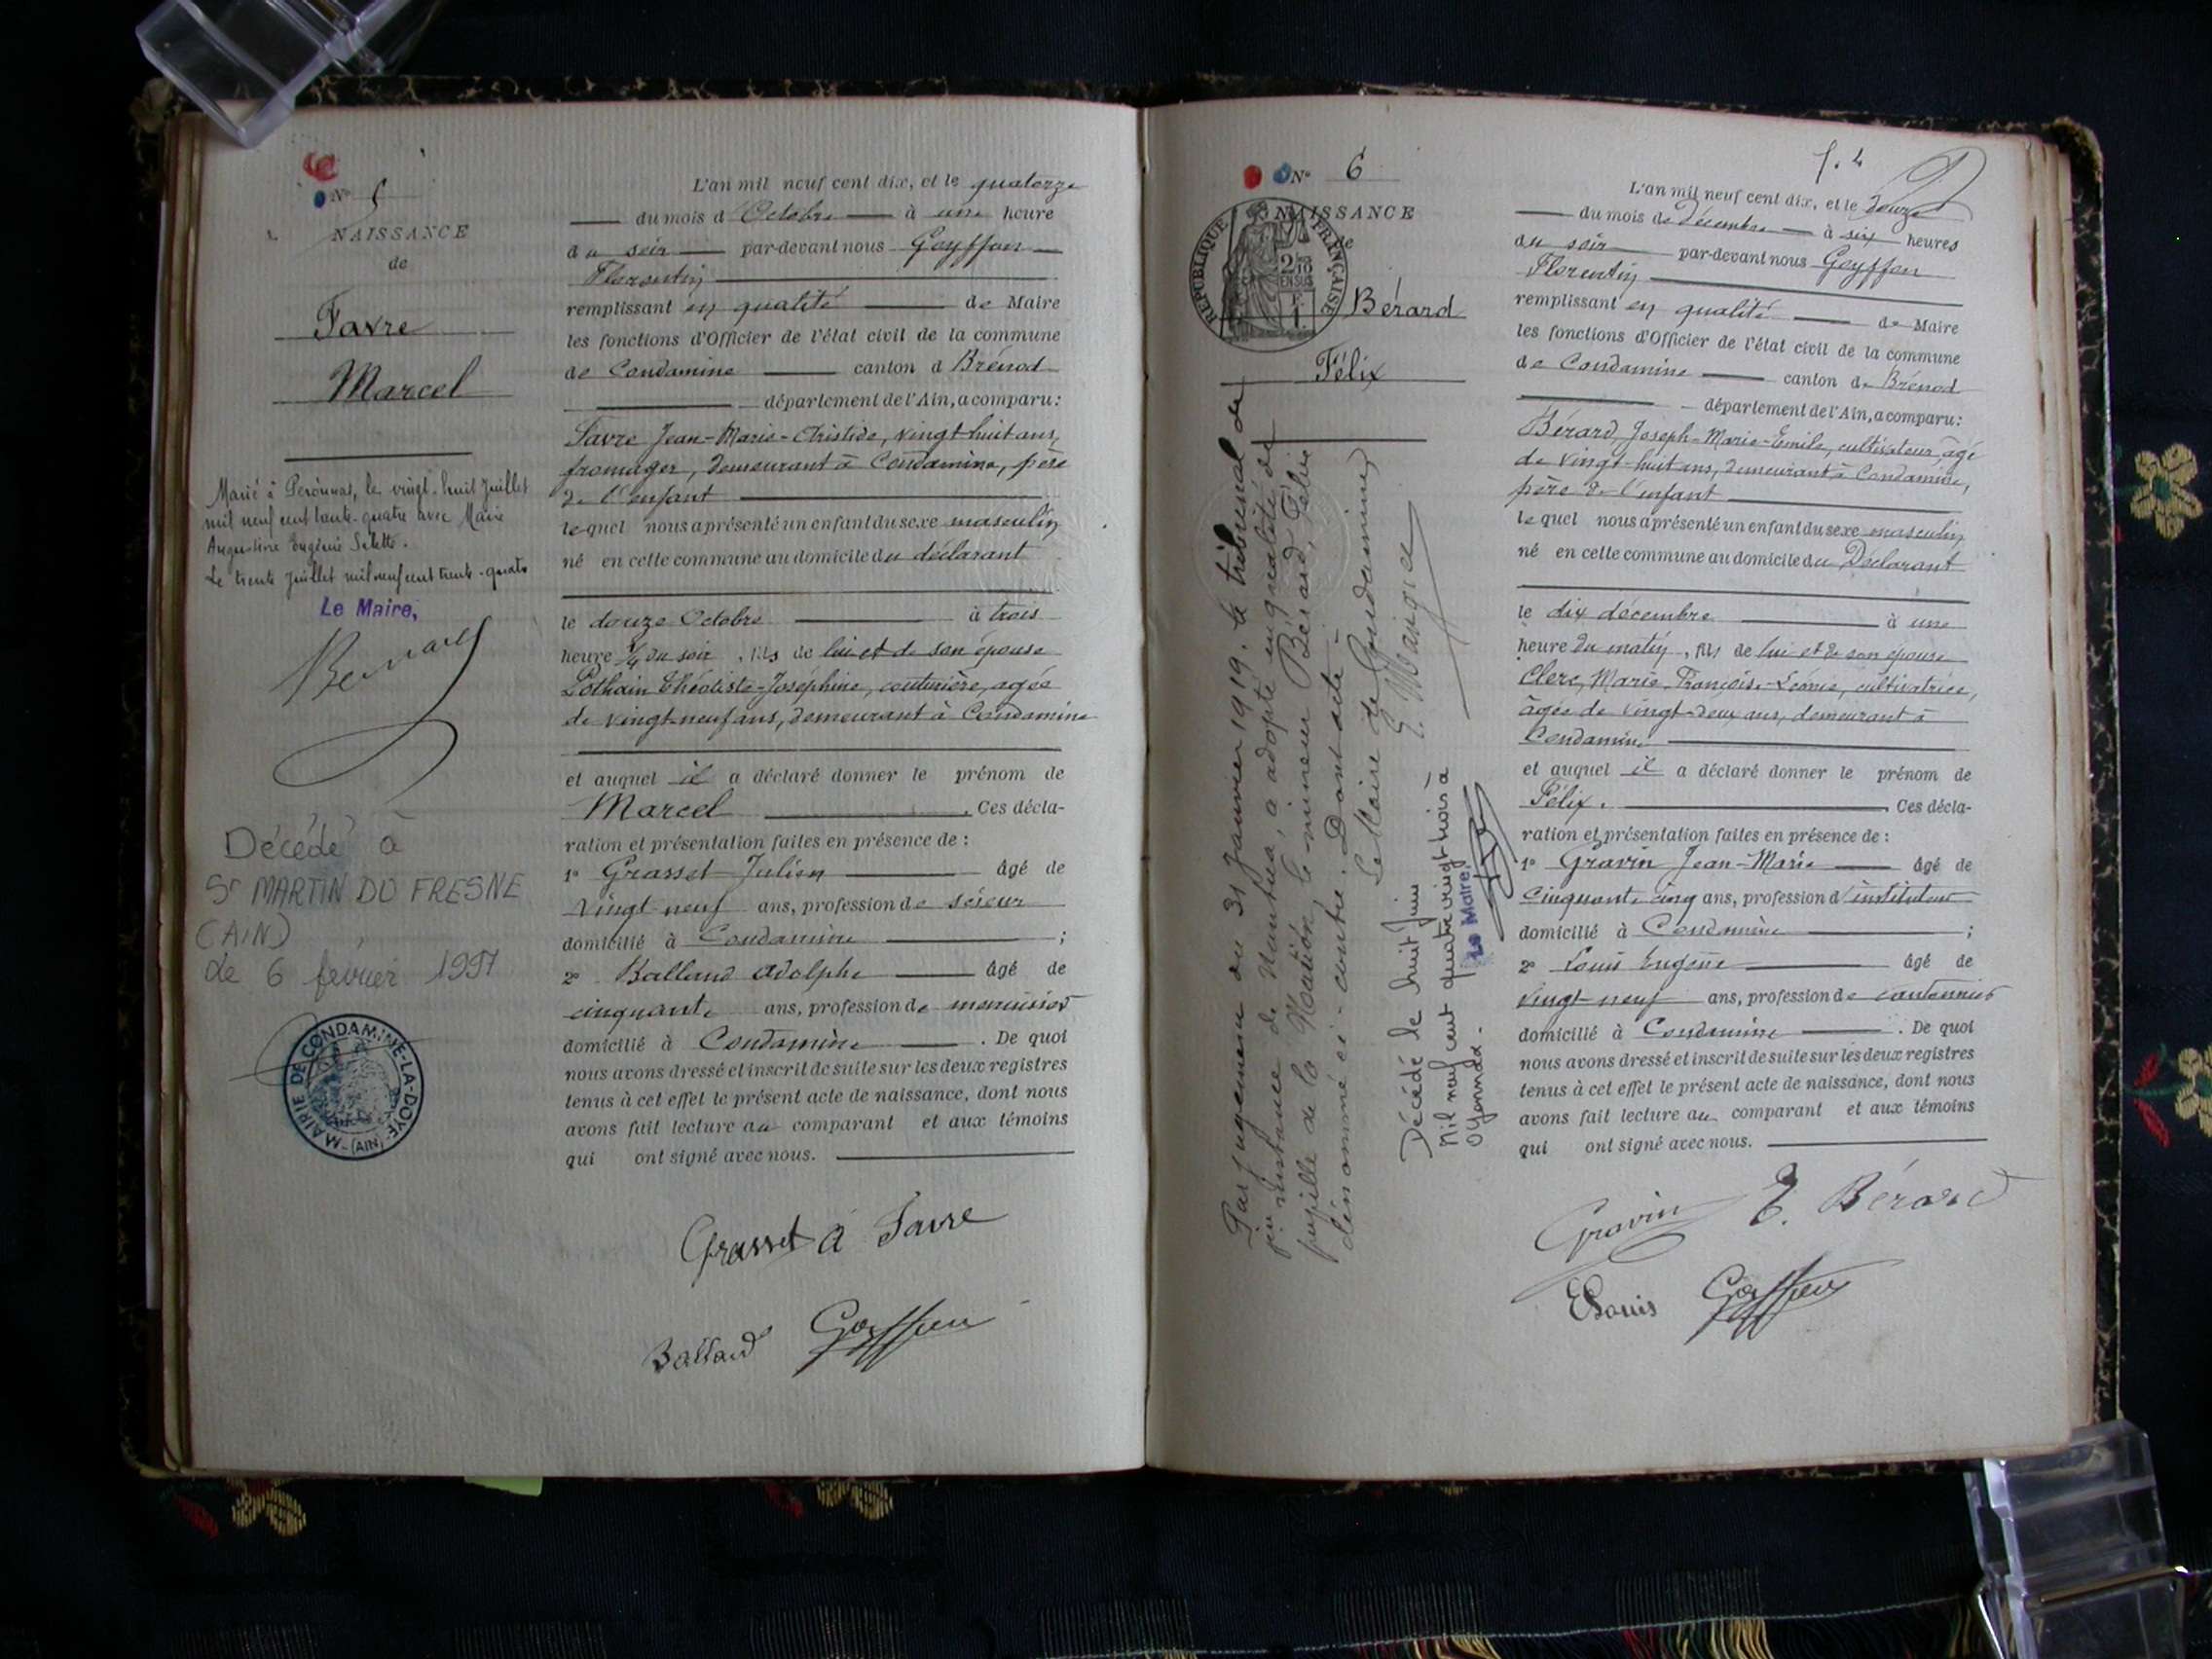 Nº 5
NAISSANCE
de
Favre
Marcel
Marié à Péronnas, le vingt-huit Juillet
mil neuf cent trente-quatre avec Marie
Augustine Eugénie
Le trente Juillet mil neuf cent trente-quatre
Le Maire,
Décédé à
St MARTIN DU FRESNE
(AIN)
Le 6 février 1997
MAIRIE DE CONDAMINE-LA-DOYE (AIN)
L'an mil neuf cent dix, et le quatorze
du mois d'Octobre à une heure
du soir par-devant nous Goyffon
Florentin
remplissant en qualité de Maire
les fonctions d'Officier de l'état civil de la commune
de Condamine canton d Brénod
département de l'Ain, a comparu:
Favre Jean-Marie-Aristide, vingt huit ans,
fromager, demeurant à Condamine, père
de l'enfant
lequel nous a présenté un enfant du sexe masculin
né en cette commune au domicile du déclarant
le douze Octobre à trois
heure 1/4 du soir, fils de lui et de son épouse
Pothain Théotiste-Joséphine, couturière, agée
de vingt-neuf ans, demeurant à Condamine
et auquel il a déclaré donner le prénom de
Marcel. Ces décla-
ration et présentation faites en présence de :
1º Grasset Julien âgé de
vingt-neuf ans, profession de scieur
domicilié à Condamine ;
2º Balland Adolphe âgé de
cinquante ans, profession de menuisier
domicilié à Condamine. De quoi
nous avons dressé et inscrit de suite sur les deux registres
tenus à cet effet le présent acte de naissance, dont nous
avons fait lecture au comparant et aux témoins
qui ont signé avec nous.
Grasset A Favre
Balland Goyffon
f. 4
Nº 6
NAISSANCE
de
RÉPUBLIQUE FRANÇAISE
2/10 EN SUS
1 F.
Bérard
Félix
Par jugement du 31 janvier 1919, le tribunal de
1re instance de Nantua, a adopté en qualité de
pupille de la Nation, le mineur Bérard, Félix
dénommé ci-contre. Dont acte.
Le Maire de Condamine,
Décédé le huit Juin
Mil neuf cent quatre vingt trois à
Oyonnax.
Le Maire,
L'an mil neuf cent dix, et le douze
du mois de décembre à six heures
du soir par-devant nous Goyffon
Florentin
remplissant en qualité de Maire
les fonctions d'Officier de l'état civil de la commune
de Condamine canton de Brénod
département de l'Ain, a comparu:
Bérard, Joseph-Marie-Emile, cultivateur, agé
de vingt-huit ans, demeurant à Condamine,
père de l'enfant
lequel nous a présenté un enfant du sexe masculin
né en cette commune au domicile du Déclarant
le dix décembre à une
heure du matin, fils de lui et de son épouse
Clerc, Marie-Françoise-Léonie, cultivatrice,
agée de vingt-deux ans, demeurant à
Condamine
et auquel il a déclaré donner le prénom de
Félix. Ces décla-
ration et présentation faites en présence de :
1º Gravin Jean-Marie âgé de
cinquante cinq ans, profession d'instituteur
domicilié à Condamine ;
2º Louis Eugène âgé de
vingt-neuf ans, profession de cantonnier
domicilié à Condamine. De quoi
nous avons dressé et inscrit de suite sur les deux registres
tenus à cet effet le présent acte de naissance, dont nous
avons fait lecture au comparant et aux témoins
qui ont signé avec nous.
Gravin E. Bérard
E Louis Goyffon